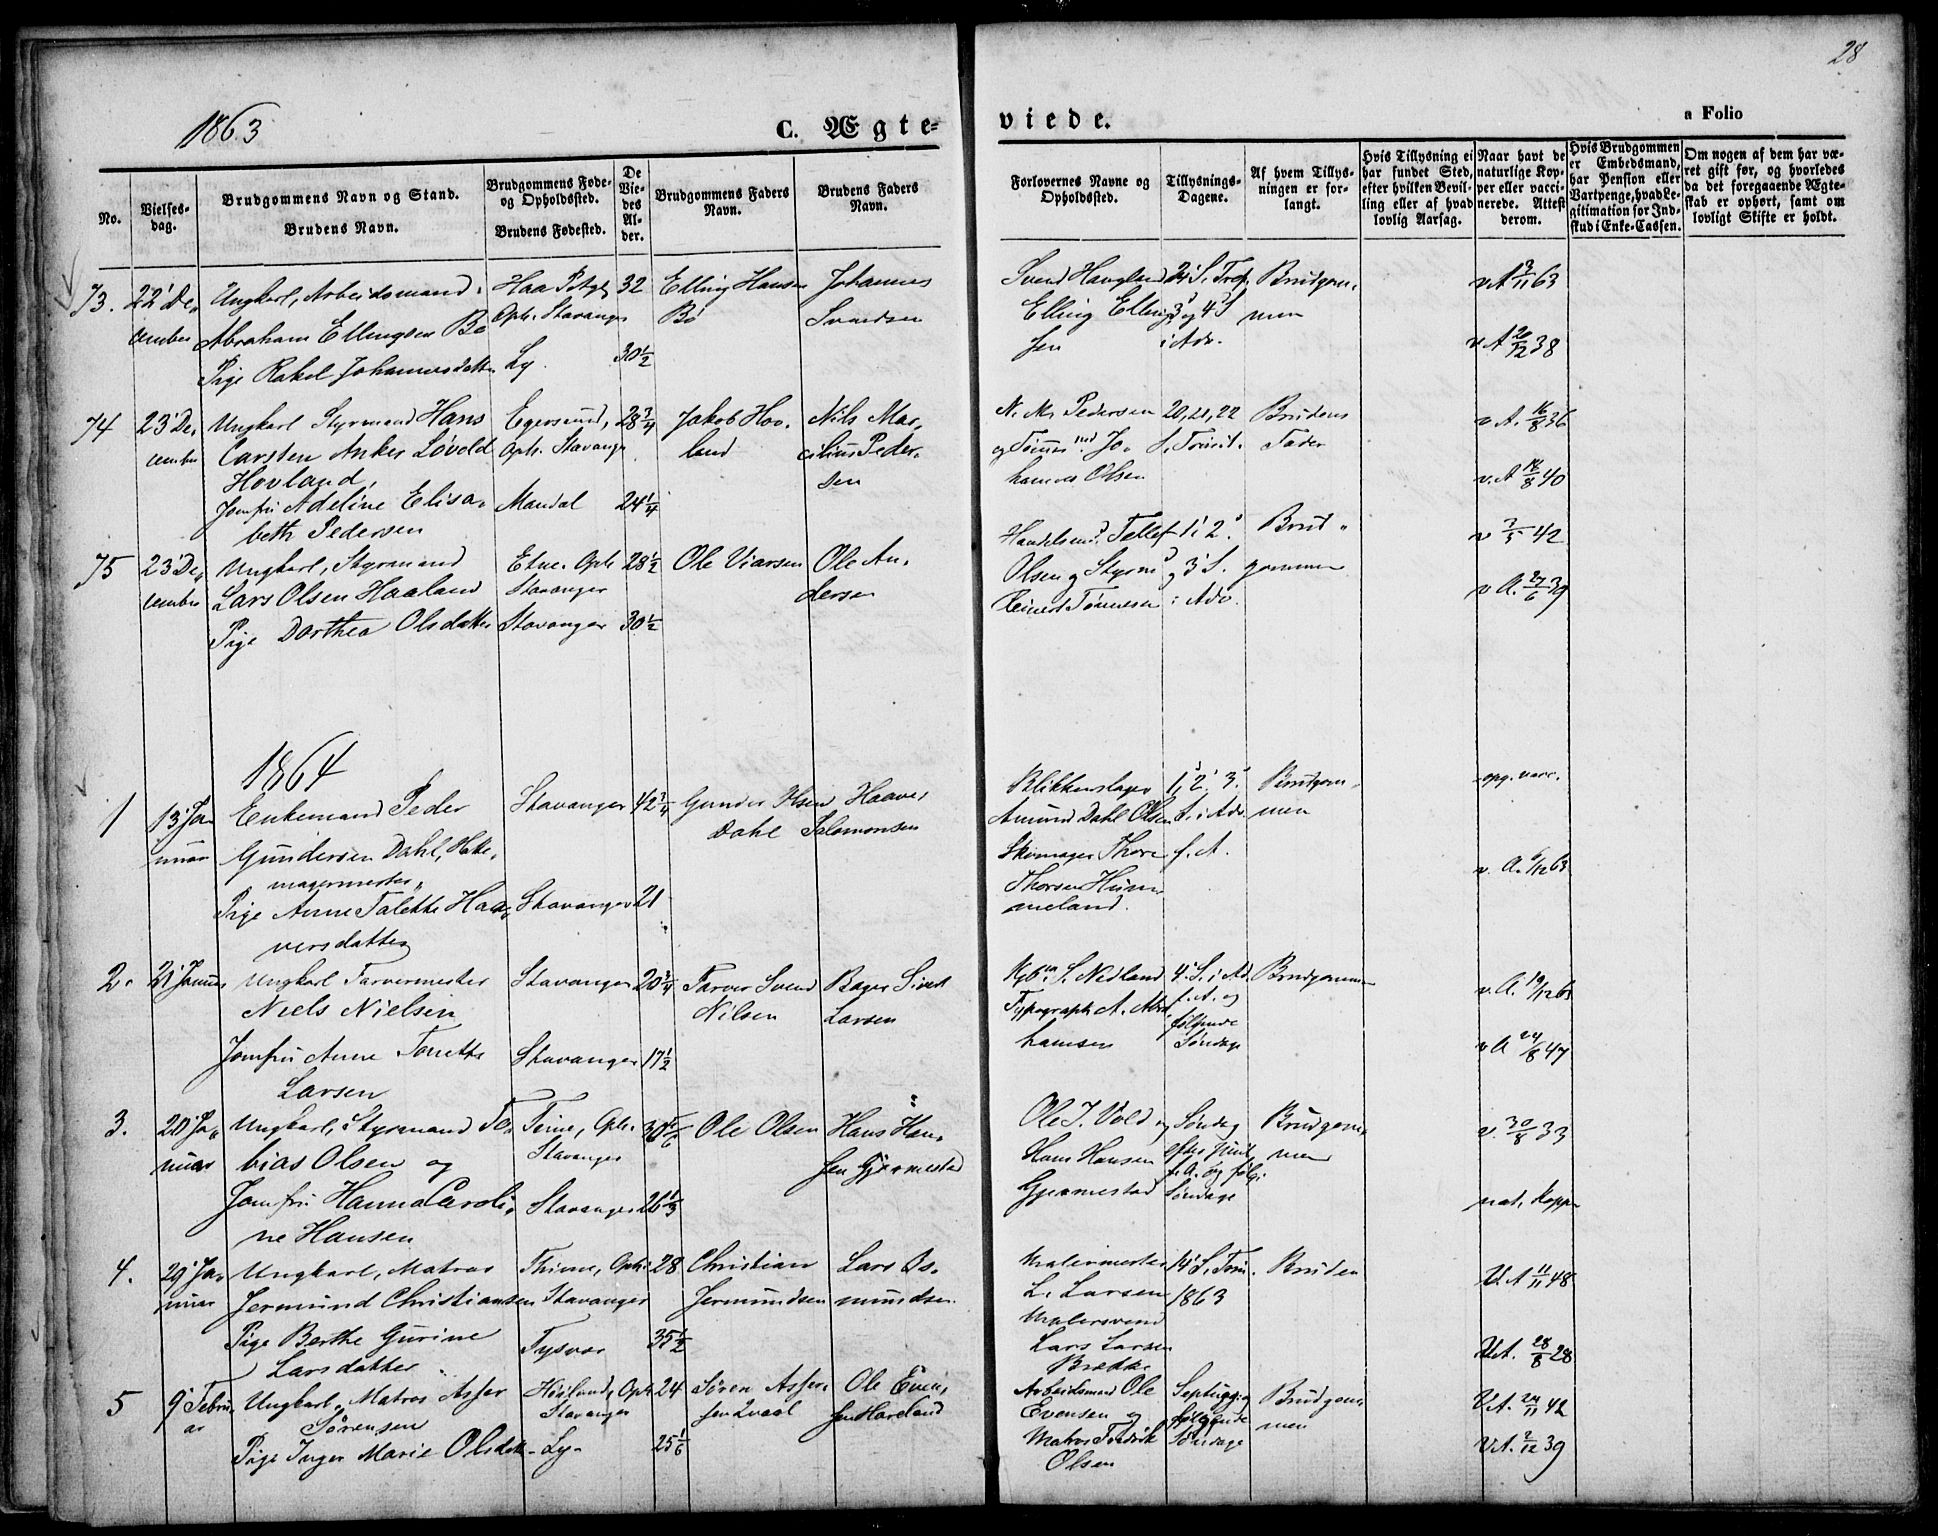 28
1863
C. Ægte-
viede.
a Folio
No.
Vielses-
dag.
Brudgommens Navn og Stand.
Brudens Navn.
Brudgommens Føde-
og Opholdssted.
Brudens Fødested.
De
Vie-
des
Al-
der.
Brudgommens Faders
Navn.
Brudens Faders
Navn.
Forlovernes Navne og
Opholdssted.
Tillysnings-
Dagene.
Af hvem Tillys-
ningen er for-
langt.
Hvis Tillysning ei
har fundet Sted,
efter hvilken Bevil-
ling eller af hvad
lovlig Aarsag.
Naar havt de
naturlige Kop-
per eller vacci-
nerede. Attest
derom.
Hvis Brudgommen
er Embedsmand,
har Pension eller
Vartpenge, hvad Le-
gitimation for Ind-
skud i Enke-Cassen.
Om nogen af dem har væ-
ret gift før, og hvorledes
da det foregaaende Ægte-
skab er ophørt, samt om
lovligt Skifte er holdt.
73.
22' De,
cember
Ungkarl, Arbeidsmand
Abraham Ellingsen Bø
Pige Rakel Johannesdatter
Haa
Oph. Stavanger
Ly
32
30 1/2
Elling Hansen
Bø
Johannes
Svendsen
Svend Haugland
Elling Elling
sen
3' og 4' S
i Adv.
Brudgom,
men
v A 3/11 63
v. A 20/12 38
74
23' De,
cember
Ungkarl Styrmand Hans
Carsten Anker Løvold
Hovland,
Jomfru Adeline Elisa,
beth Pedersen
Egersund,
Oph. Stavanger
Mandal
28 3/4
24 1/4
Jakob Hov,
land
Nils Mar,
cilius Peder,
sen
N. M. Pedersen
og Tømmermd Jo,
hannes Olsen
20, 21, 22
S. Trinit.
Brudens
Fader
v. A. 16/8 36
v. A 14/8 40
75
23' De,
cember
Ungkarl, Styrmand
Lars Olsen Haaland
Pige Dorthea Olsdatter
Etne. Oph.
Stavanger
Stavanger
28 1/2
30 1/2
Ole Viarsen
Ole An,
dersen
Handelsmd. Tellef
Olsen og Styrmd
Reinert Tønnesen
1' 2'
og 3' S.
i Adv.
Brud,
gommen
v 7/5 42
v A. 27/6 39
1864
1
13' Ja,
nuar
Enkemand Peder
Gundersen Dahl, Hatte,
magermester,
Pige Anne Talette Haa,
versdatter
Stavanger
Stavanger
42 3/4
21
Gunder
Dahl
Haaver
Salomonsen
Blikkenslager
Amund Dahl Olsen
Skomager Thore
Thorsen Hum,
meland.
1' 2' 3'
S. i Adv.
f. A.
Brudgom,
men
opg. vacc.
v. A. 6/12 63
2.
21 Januar
Ungkarl Farvermester
Niels Nielsen
Jomfru Anne Torette
Larsen
Stavanger
Stavanger
20 3/4
17 1/2
Farver Svend
Nilsen
Bager Sivert
Larsen
S. Nedland
Typograph A. Abra,
hamsen
4' S. i Ad
f. A. og
følgende
Søndage
Brudgommen
v. A. 19/12 63
v A 24/8 47
3.
20' Ja,
nuar
Ungkarl, Styrmand To,
bias Olsen og
Jomfru Hanna Caroli,
ne Hansen
Time, Oph.
Stavanger
Stavanger
30 5/6
26 1/3
Ole Olsen
Hans Han,
sen Gjermestad
Ole J. Vold og
Hans Hansen
Gjermestad
Søndag
efter Juul
f. A. og følg.
Søndage
Brudgom,
men
v. 30/8 33
nat. Kopper
4.
29' Ja,
nuar
Ungkarl, Matros
Jermund Christiansen
Pige Berthe Gurine
Larsdatter
Thime, Oph.
Stavanger
Tysvær
28
35 1/2
Christian
Jermundsen
Lars As,
mundsen
Malermester
L. Larsen
Malersvend
Lars Larsen
Brekke
14' S. Trin.
1863
Bruden
V. A 11/11 48
V. A. 28/8 28
5
9' Febru,
ar
Ungkarl, Matros Asser
Sørensen
Pige Inger Marie Olsdatter
Høiland, Oph.
Stavanger
Ly
24
25 1/6
Søren Asser,
sen Qvaal
Ole Even,
sen Haaland
Arbeidsmand Ole
Evensen og
Matros Fredrik
Olsen
Septuag. og
følgende
Søndage
Brudgom,
men
V. A. 24/11 42
V. A. 2/12 39